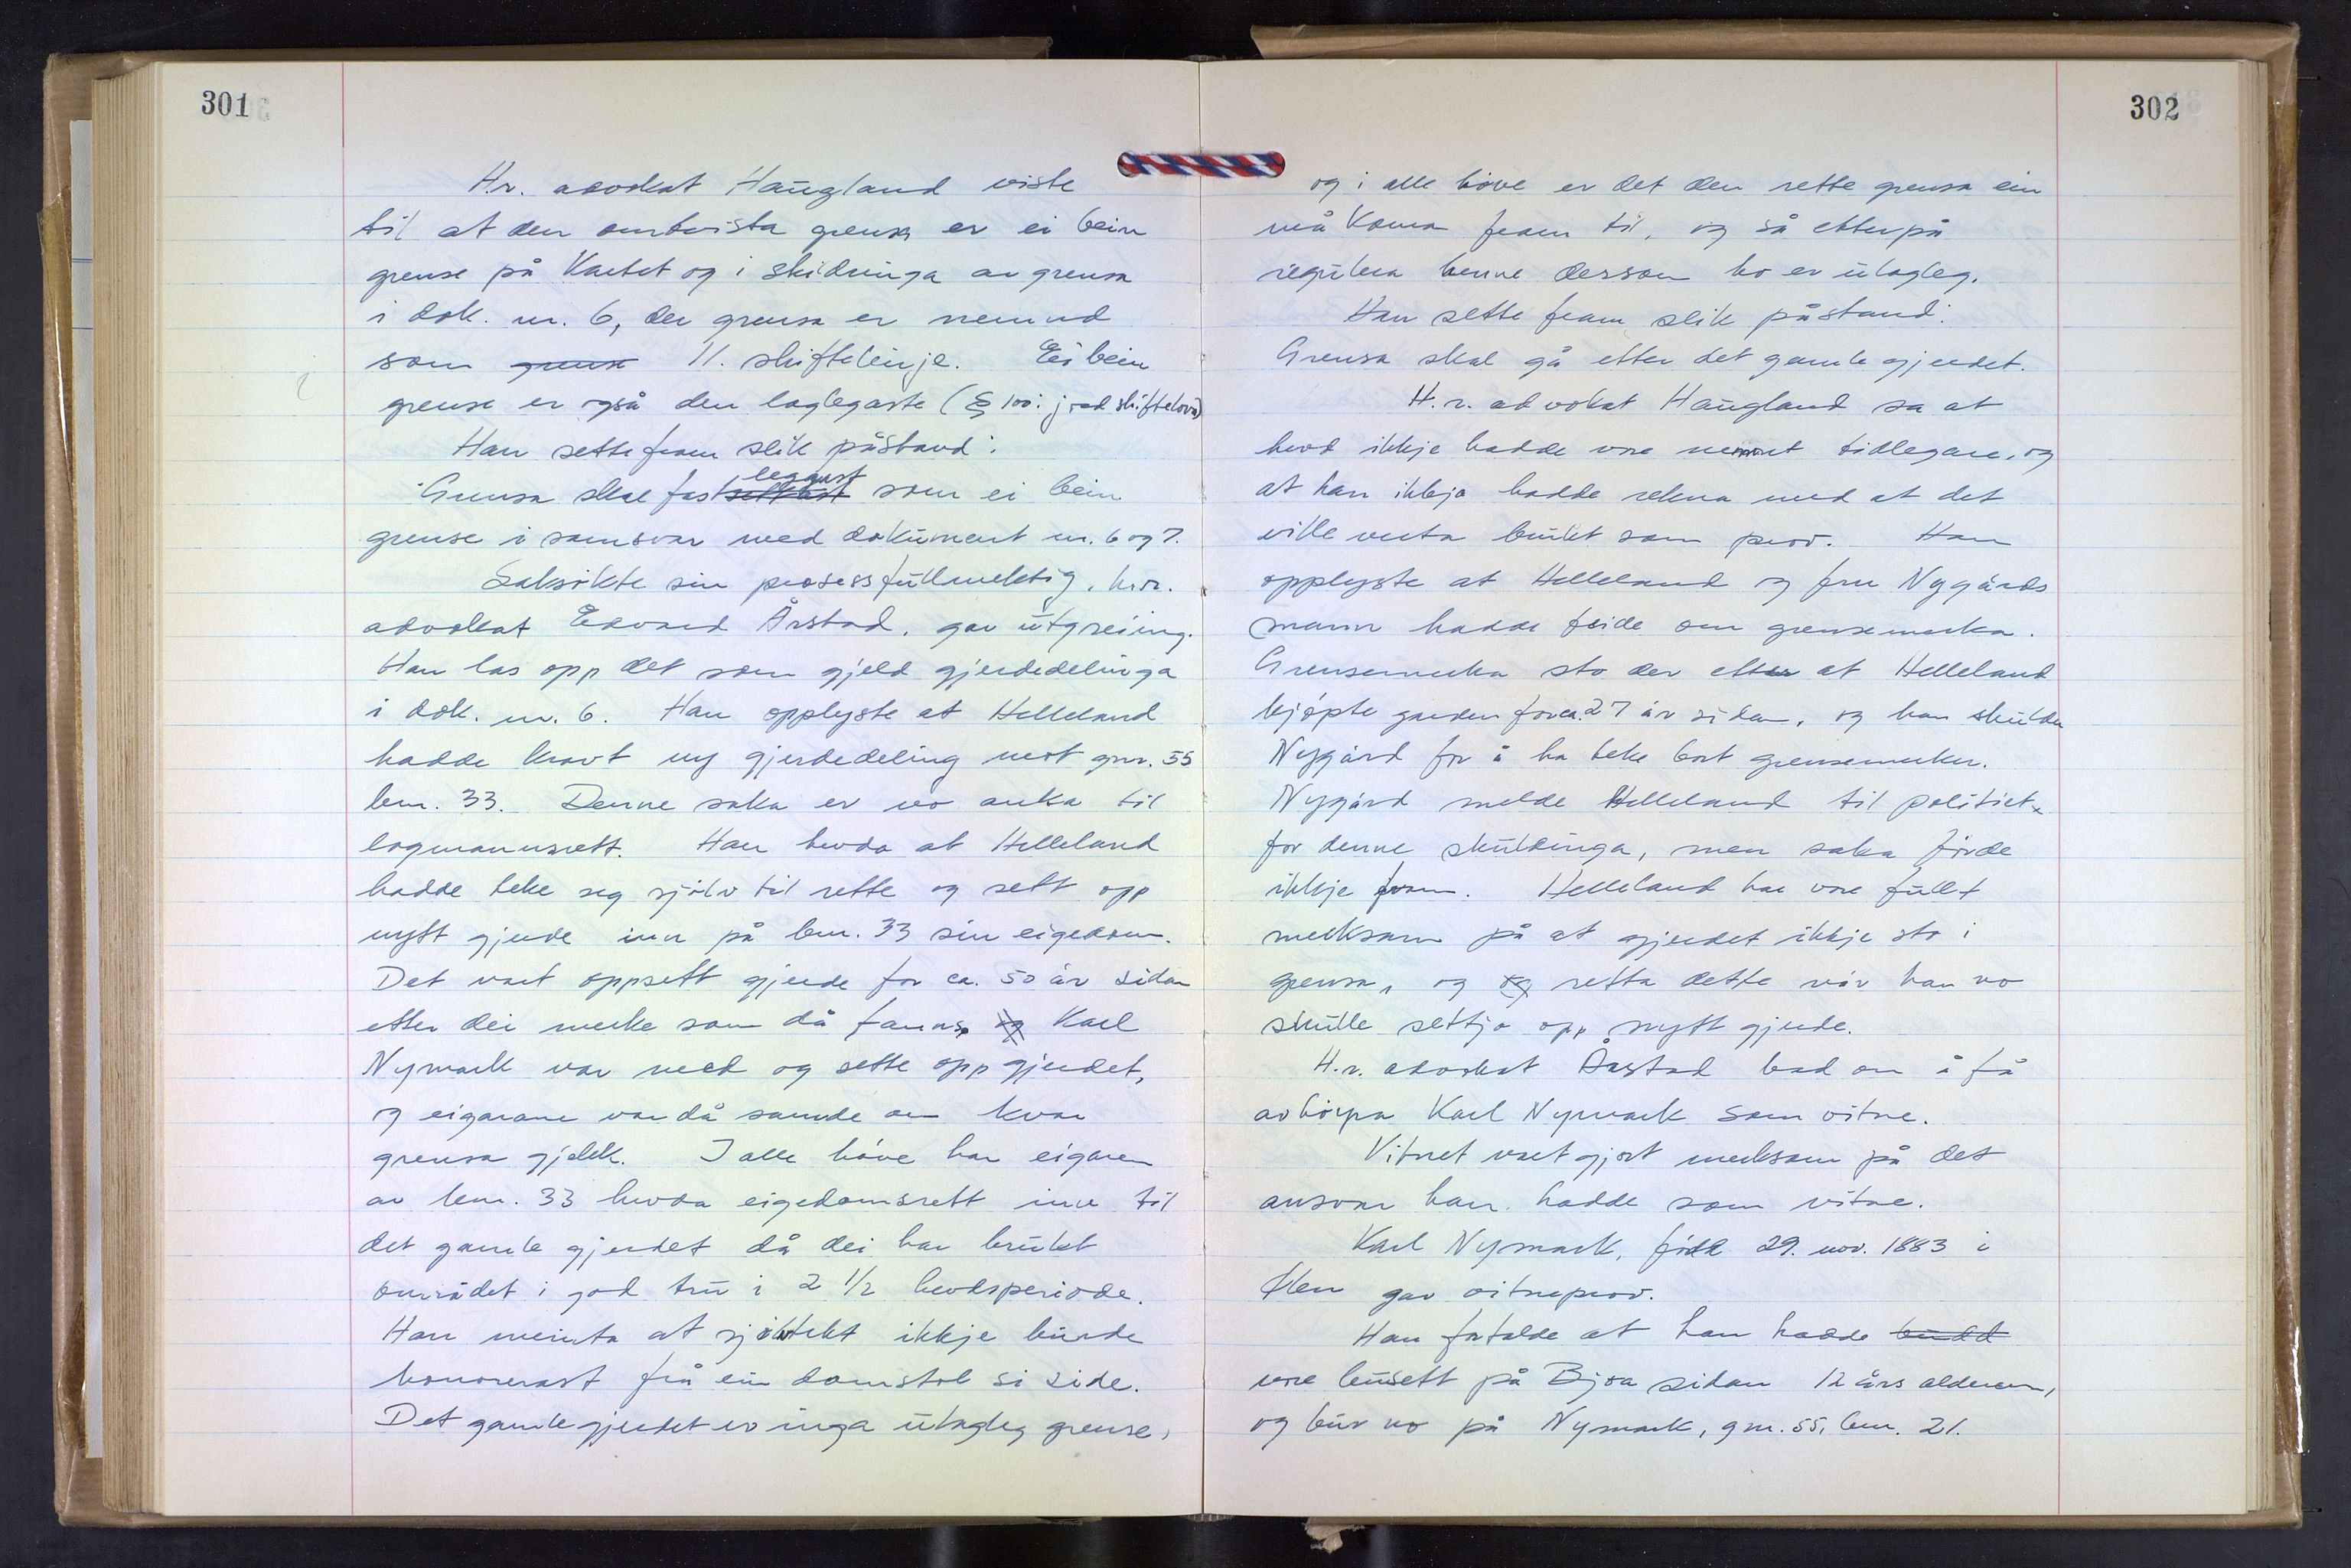 301
H.r. advokat Haugland viste
til at den omtvista grensa er ei bein
grense på kartet og i skildringa av grensa
i dok. nr. 6, der grensa er nemnd
som grensa 11. skiftelinje. Ei bein
grense er også den laglegaste (§ 100: jordskiftelova)
Han sette fram slik påstand:
leggast
Grensa skal fastsettast som ei bein
grense i samsvar med dokument nr. 6 og 7.
Saksøkte sin prosessfullmektig, h.r.
advokat Edvard Årstad, gav utgreiing.
Han las opp det som gjeld gjerdedelinga
i dok. nr. 6. Han opplyste at Helleland
hadde kravt ny gjerdedeling mot gnr. 55
bnr. 33. Denne saka er no anka til
lagmannsrett. Han hevda at Helleland
hadde teke seg sjølv til rette og sett opp
nytt gjerde inn på bnr. 33 sin eigedom.
Det vart oppsett gjerde for ca. 50 år sidan
etter dei merke som då fanns, og Karl
Nymark var med og sette opp gjerdet,
og eigarane var då samde om kvar
grensa gjekk. I alle høve har eigaren
av bnr. 33 hevda eigedomsrett inn til
det gamle gjerdet då dei har brukt
området i god tru i 2 1/2 hevdsperiode.
Han meinta at sjøltekt ikkje burde
honorerast frå ein domstol si side.
Det gamle gjerdet er inga ulagleg grense,
302
og i alle høve er det den rette grensa ein
må koma fram til, og så etterpå
regulera henne dersom ho er ulagleg.
Han sette fram slik påstand:
Grensa skal gå etter det gamle gjerdet.
H.r. advokat Haugland sa at
hevd ikkje hadde vore nemnt tidlegare, og
at han ikkje hadde rekna med at det
ville verta brukt som prov. Han
opplyste at Helleland og fru Nygårds
mann hadde feide om grensemerka.
Grensemerka sto der etter at Helleland
kjøpte garden for ca. 27 år sidan, og han skulda
Nygård for å ha teke bort grensemerker.
Nygård melde Helleland til politiet
for denne skuldinga, men saka førde
ikkje fram. Helleland har vore fullt
merksam på at gjerdet ikkje sto i
grensa, og og retta dette når han no
skulle settja opp nytt gjerde.
H.r. advokat Årstad bad om å få
avhøyra Karl Nymark som vitne.
Vitnet vart gjort merksam på det
ansvar han hadde som vitne.
Karl Nymark, fødd 29. nov. 1883 i
Ølen gav vitneprov.
Han fortalde at han hadde budd
vore busett på Bjoa sidan 12 års alderen,
og bur no på Nymark, gnr. 55, bnr. 21.